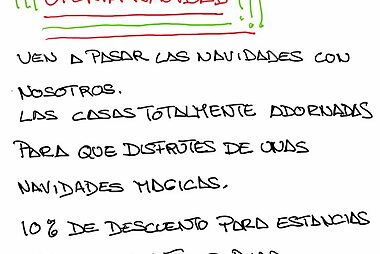 ¡¡¡ OFERTA NAVIDAD !!!
VEN A PASAR LAS NAVIDADES CON
NOSOTROS.
LAS CASAS TOTALMENTE ADORNADAS
PARA QUE DISFRUTES DE UNAS
NAVIDADES MAGICAS.
10% DE DESCUENTO PARA ESTANCIAS